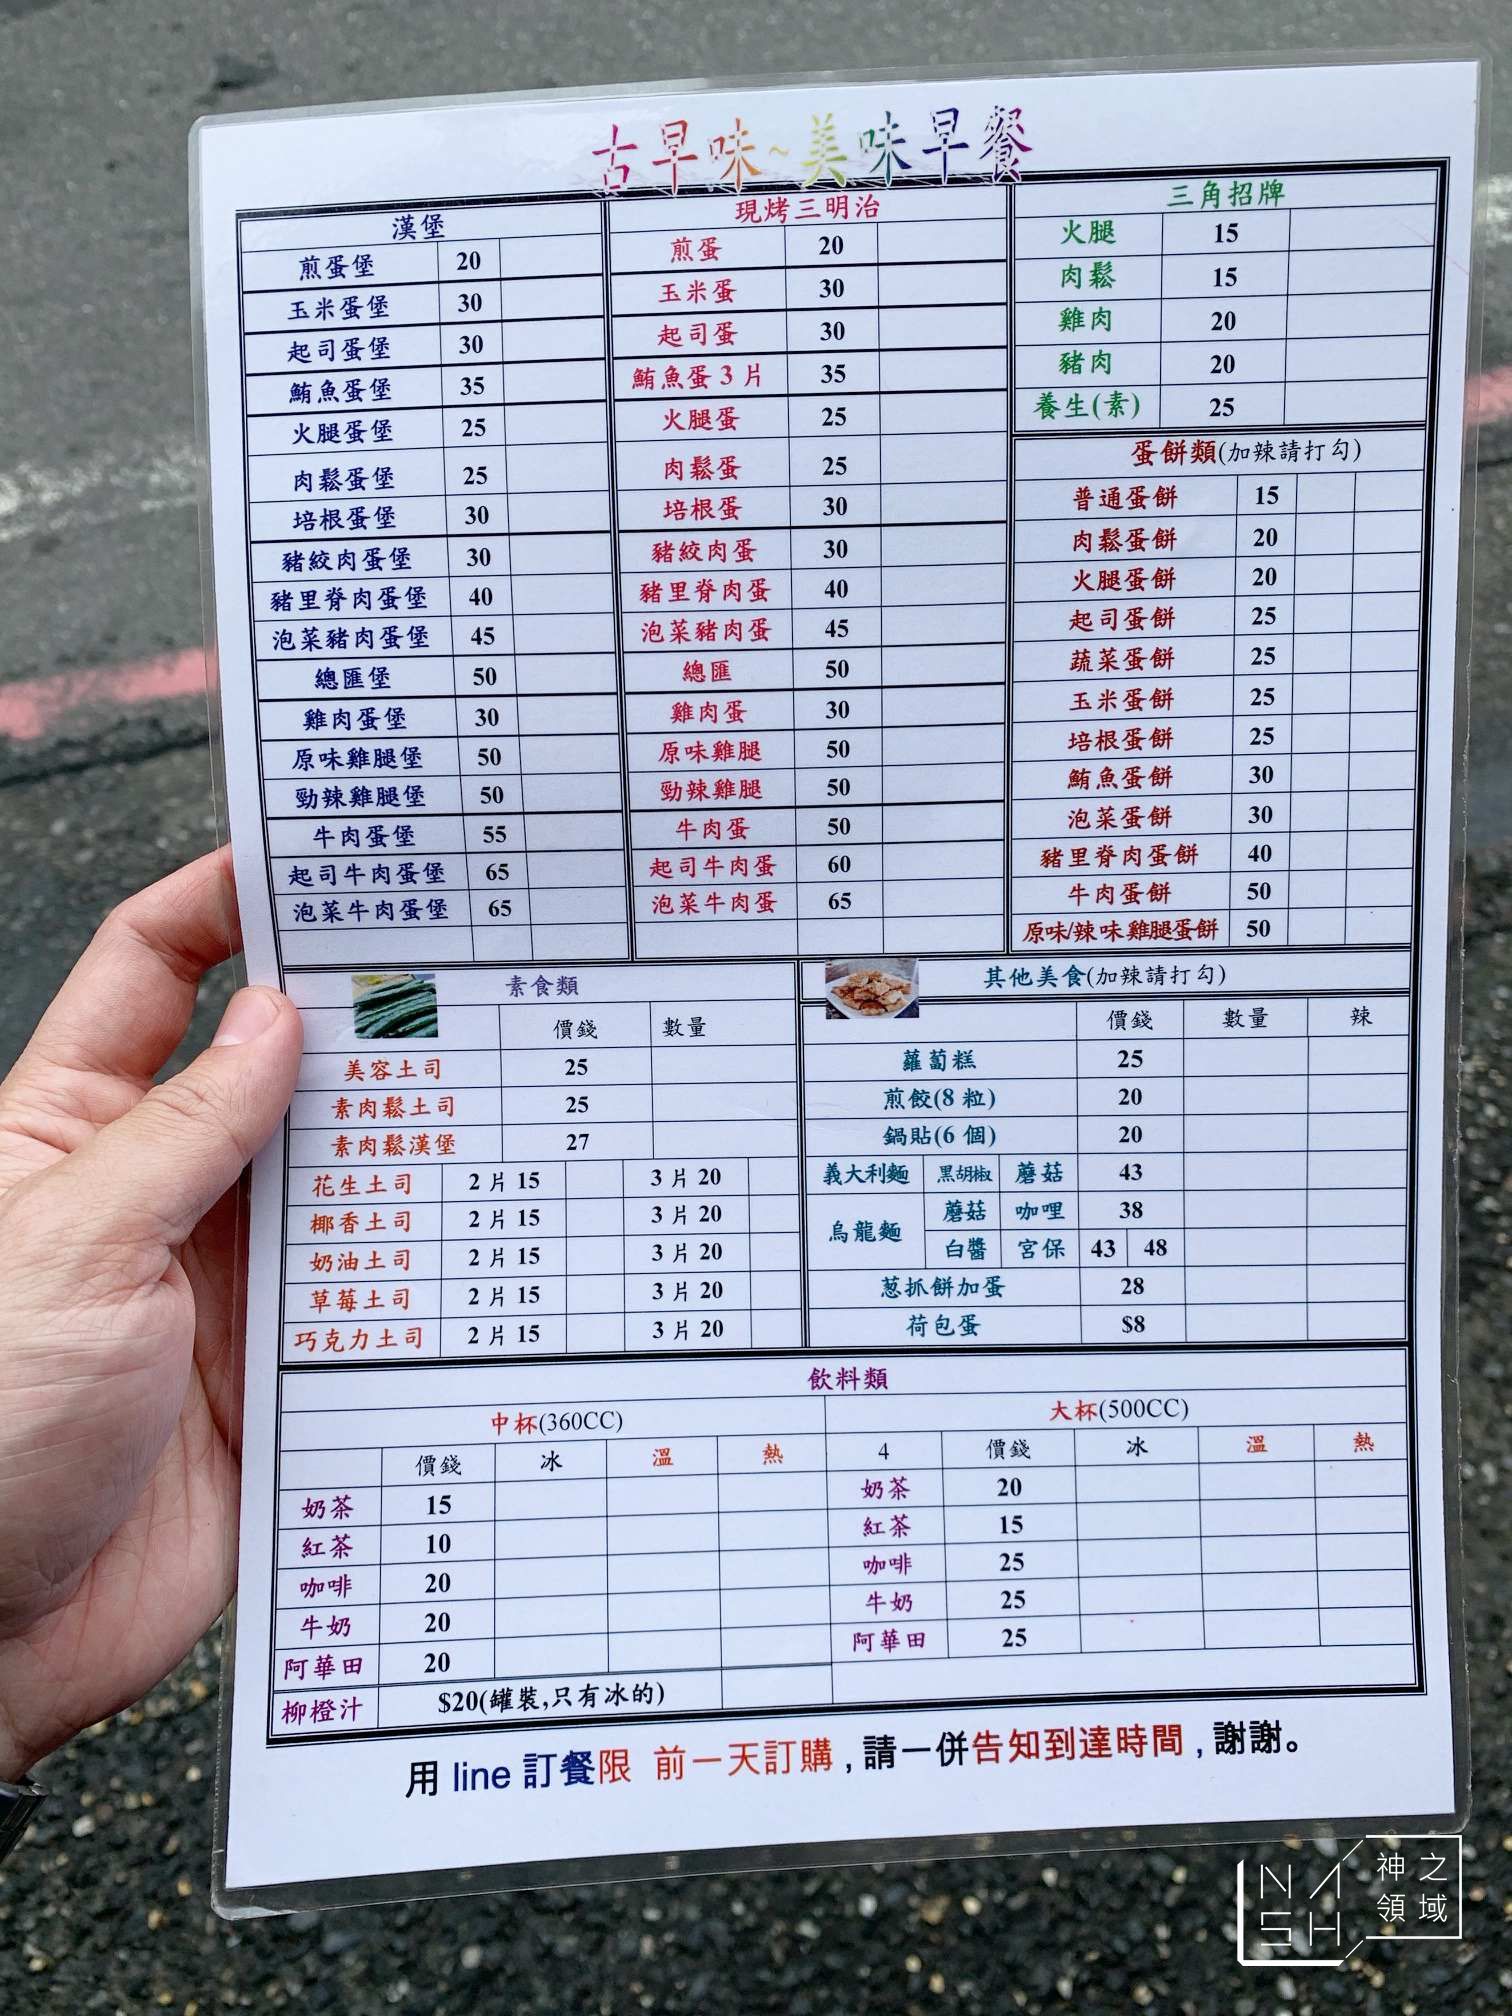 古早味~美味早餐
漢堡
煎蛋堡 20
玉米蛋堡 30
起司蛋堡 30
鮪魚蛋堡 35
火腿蛋堡 25
肉鬆蛋堡 25
培根蛋堡 30
豬絞肉蛋堡 30
豬里脊肉蛋堡 40
泡菜豬肉蛋堡 45
總匯堡 50
雞肉蛋堡 30
原味雞腿堡 50
勁辣雞腿堡 50
牛肉蛋堡 55
起司牛肉蛋堡 65
泡菜牛肉蛋堡 65
現烤三明治
煎蛋 20
玉米蛋 30
起司蛋 30
鮪魚蛋3片 35
火腿蛋 25
肉鬆蛋 25
培根蛋 30
豬絞肉蛋 30
豬里脊肉蛋 40
泡菜豬肉蛋 45
總匯 50
雞肉蛋 30
原味雞腿 50
勁辣雞腿 50
牛肉蛋 50
起司牛肉蛋 60
泡菜牛肉蛋 65
三角招牌
火腿 15
肉鬆 15
雞肉 20
豬肉 20
養生(素) 25
蛋餅類(加辣請打勾)
普通蛋餅 15
肉鬆蛋餅 20
火腿蛋餅 20
起司蛋餅 25
蔬菜蛋餅 25
玉米蛋餅 25
培根蛋餅 25
鮪魚蛋餅 30
泡菜蛋餅 30
豬里脊肉蛋餅 40
牛肉蛋餅 50
原味/辣味雞腿蛋餅 50
素食類
價錢 數量
美容土司 25
素肉鬆土司 25
素肉鬆漢堡 27
花生土司 2片15 3片20
椰香土司 2片15 3片20
奶油土司 2片15 3片20
草莓土司 2片15 3片20
巧克力土司 2片15 3片20
其他美食(加辣請打勾)
價錢 數量 辣
蘿蔔糕 25
煎餃(8粒) 20
鍋貼(6個) 20
義大利麵 黑胡椒 蘑菇 43
烏龍麵 蘑菇 咖哩 38
白醬 宮保 43 48
葱抓餅加蛋 28
荷包蛋 $8
飲料類
中杯(360CC)
價錢 冰 溫 熱
奶茶 15
紅茶 10
咖啡 20
牛奶 20
阿華田 20
柳橙汁 $20(罐裝,只有冰的)
大杯(500CC)
4 價錢 冰 溫 熱
奶茶 20
紅茶 15
咖啡 25
牛奶 25
阿華田 25
用 line 訂餐限 前一天訂購，請一併告知到達時間，謝謝。
NASH
神之
領域